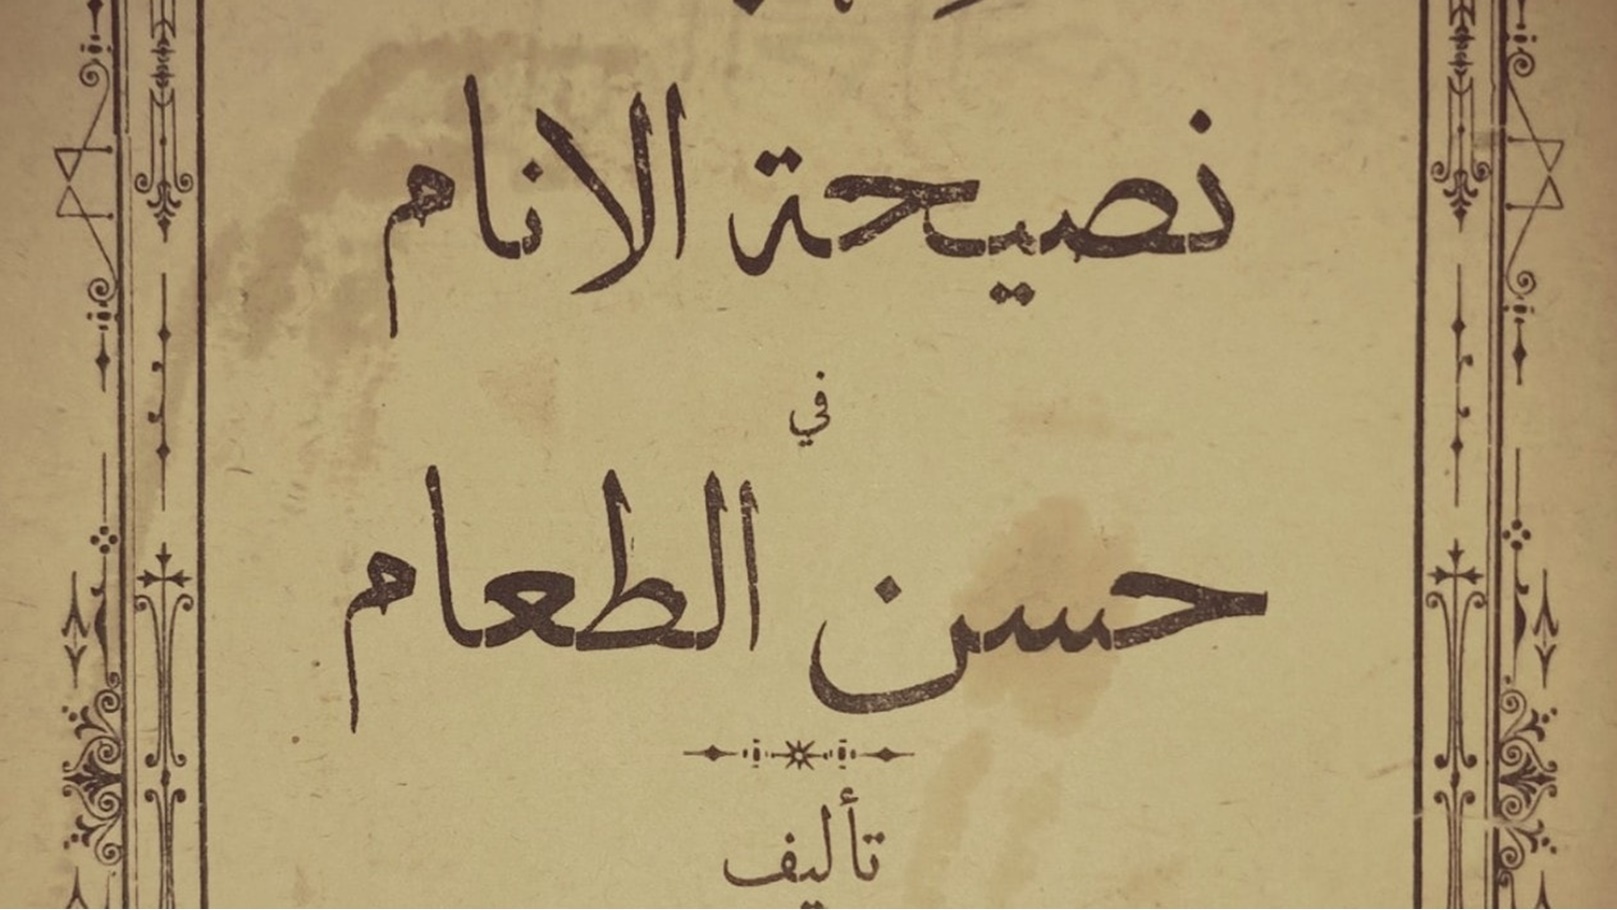 نصيحة الانام
في
حسن الطعام
تأليف